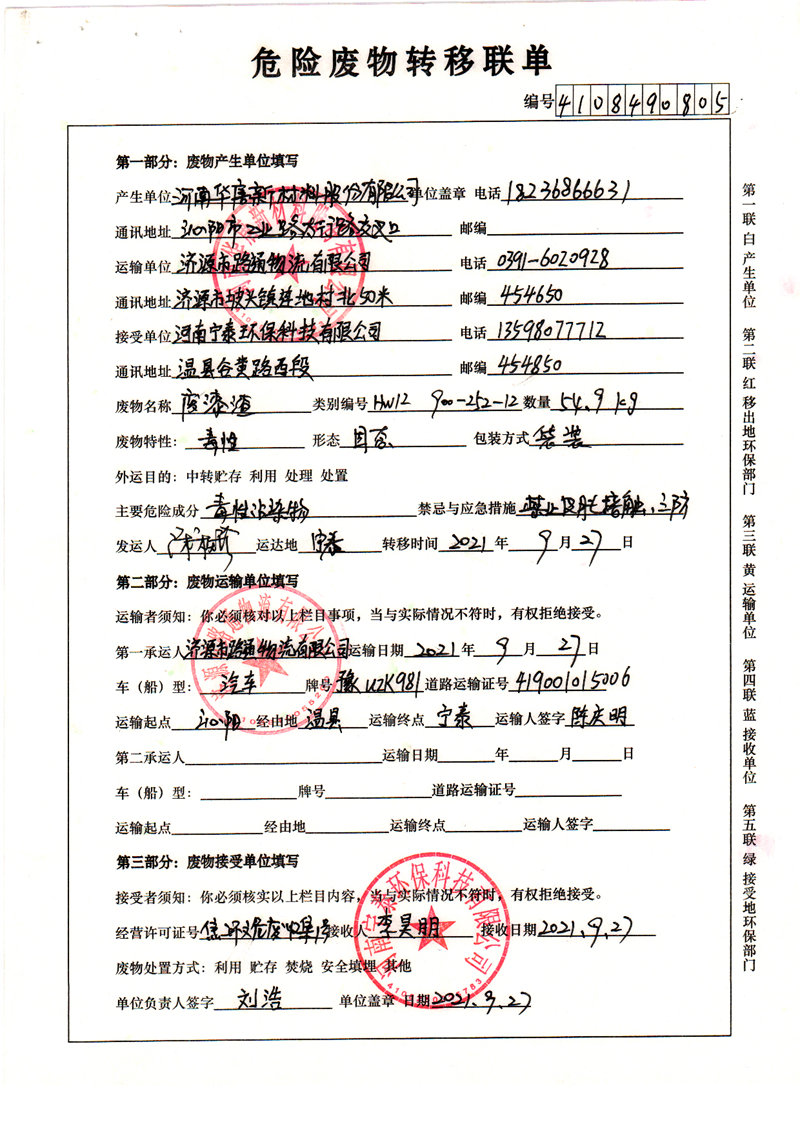 危险废物转移联单
编号 4108490805
第一部分：废物产生单位填写
产生单位 河南华唐新材料股份有限公司 单位盖章 电话 18236866631
通讯地址 沁阳市工业路太行路交叉口 邮编
运输单位 济源市路通物流有限公司 电话 0391-6020928
通讯地址 济源市坡头镇连地村北50米 邮编 454650
接受单位 河南宁泰环保科技有限公司 电话 13598077712
通讯地址 温县谷黄路西段 邮编 454850
废物名称 废漆渣 类别编号 HW12 900-252-12 数量 54.9 kg
废物特性： 毒性 形态 固态 包装方式 袋装
外运目的：中转贮存 利用 处理 处置
主要危险成分 毒性沾染物 禁忌与应急措施 禁止皮肤接触、三防
发运人 运达地 宁泰 转移时间 2021 年 9 月 27 日
第二部分：废物运输单位填写
运输者须知：你必须核对以上栏目事项，当与实际情况不符时，有权拒绝接受。
第一承运人 济源市路通物流有限公司 运输日期 2021 年 9 月 27 日
车（船）型： 汽车 牌号 豫UZK981 道路运输证号 419001015006
运输起点 沁阳 经由地 温县 运输终点 宁泰 运输人签字 陈庆明
第二承运人 运输日期 年 月 日
车（船）型： 牌号 道路运输证号
运输起点 经由地 运输终点 运输人签字
第三部分：废物接受单位填写
接受者须知：你必须核实以上栏目内容，当与实际情况不符时，有权拒绝接受。
经营许可证号 焦环危废 接收人 李昊明 接收日期 2021.9.27
废物处置方式：利用 贮存 焚烧 安全填埋 其他
单位负责人签字 刘浩 单位盖章 日期 2021.9.27
第一联 白 产生单位 第二联 红 移出地环保部门 第三联 黄 运输单位 第四联 蓝 接收单位 第五联 绿 接受地环保部门